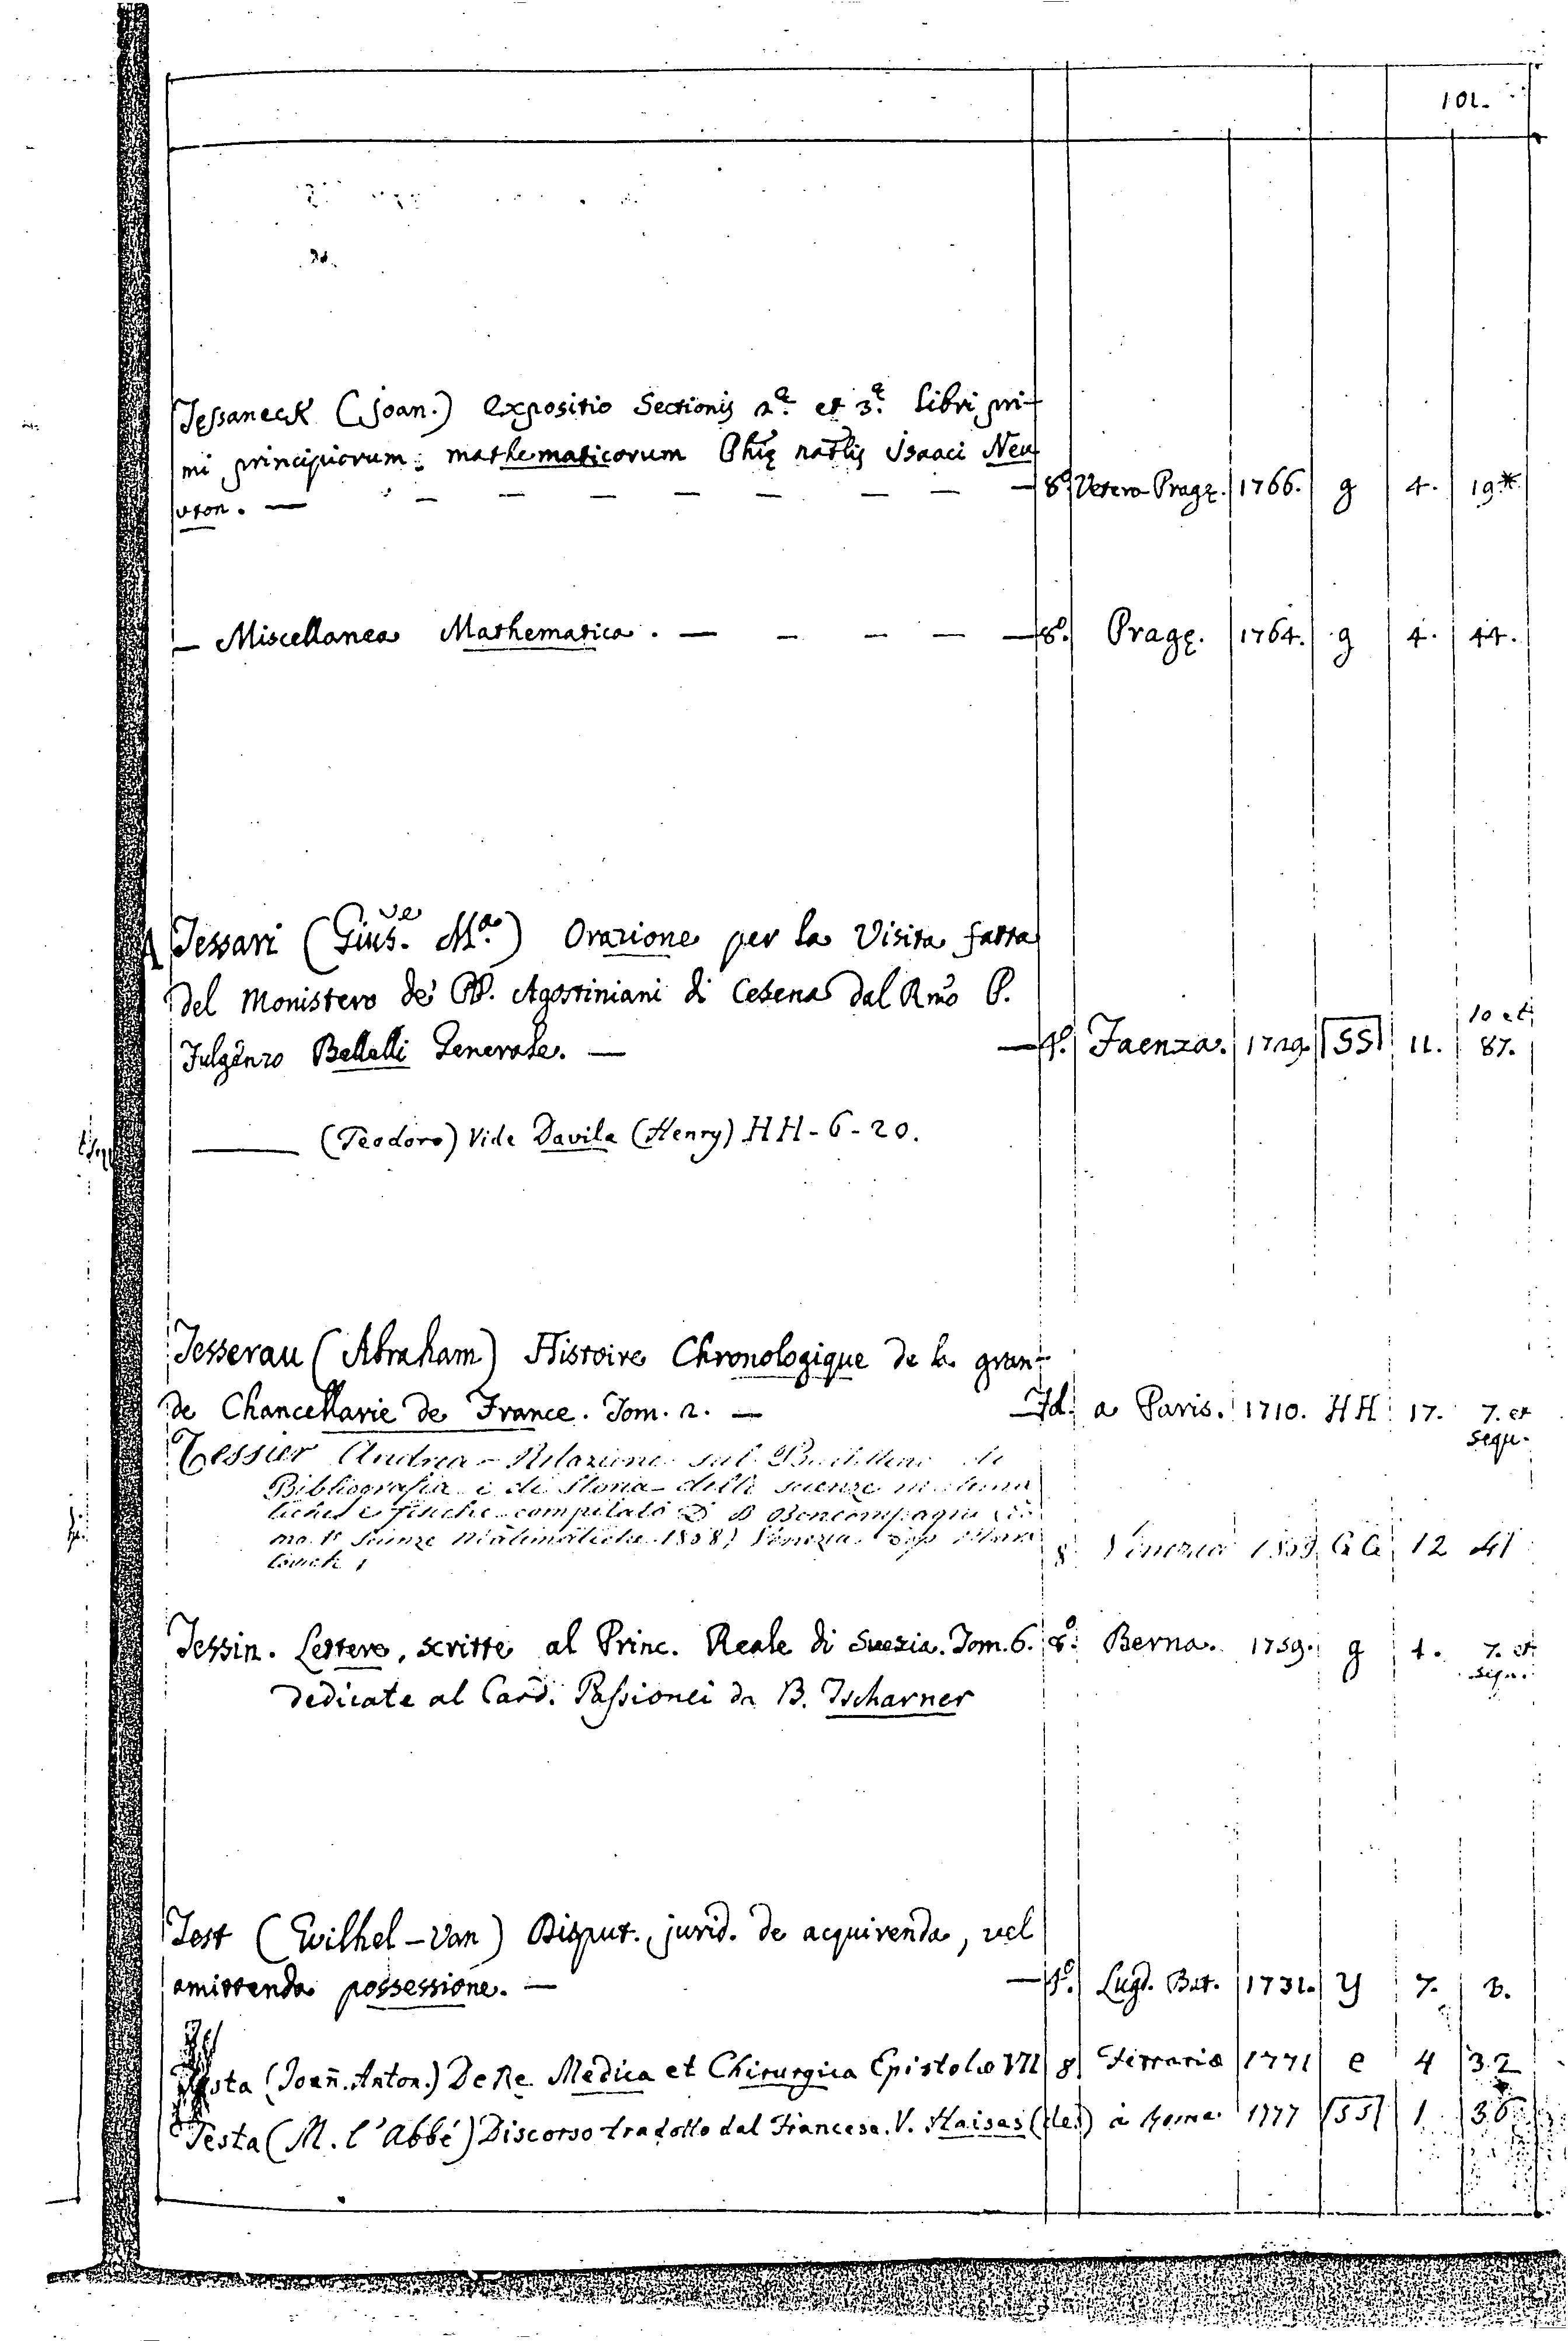 101.
Tessaneck (Joan.) Expositio Sectionis 2.ª et 3.ª Libri pri-
mi principiorum mathematicorum Phię natlis Isaaci Neu
vton. — 8º Vetero-Pragę. 1766. g 4. 19*
— Miscellanea Mathematica. — 8º. Pragę. 1764. g 4. 44.
Tessari (Gius.ve M.a) Orazione per la Visita fatta
del Monistero de' PP. Agostiniani di Cesena dal Rmo P. 10 et
Fulgenzo Bellelli Generale. — 4º. Faenza. 1729. SS 11. 87.
— (Teodoro) Vide Davila (Henry) HH-6-20.
Tesserau (Abraham) Histoire Chronologique de la gran-
de Chancellarie de France. Tom. 2. — Fol. a Paris. 1710. HH 17. 7. et
sequ.
Tessier Andrea - Relazione sul Bullettino di
Bibliografia e di Storia delle scienze matema
tiche e fisiche compilato D B Boncompagni
Scienze Matematiche 1868) Venezia
8 Venezia GG 12 41
Tessin. Lettere, scritte al Princ. Reale di Suezia. Tom. 6. 8º. Berna. 1759. g 4. 7. et
sequ.
dedicate al Card. Passionei da B. Tscharner
Test (Guilhel-Van) Disput. jurid. de acquirenda, vel
amittenda possessione. — 4º. Lugd. Bat. 1731. y 7. 8.
Testa (Joañ. Anton.) De Re Medica et Chirurgica Epistolæ VII 8 Ferrariæ 1771 e 4 32
Testa (M. l'Abbé) Discorso tradotto dal Francese. V. Haisas (de) a Roma 1777 SS 1 36